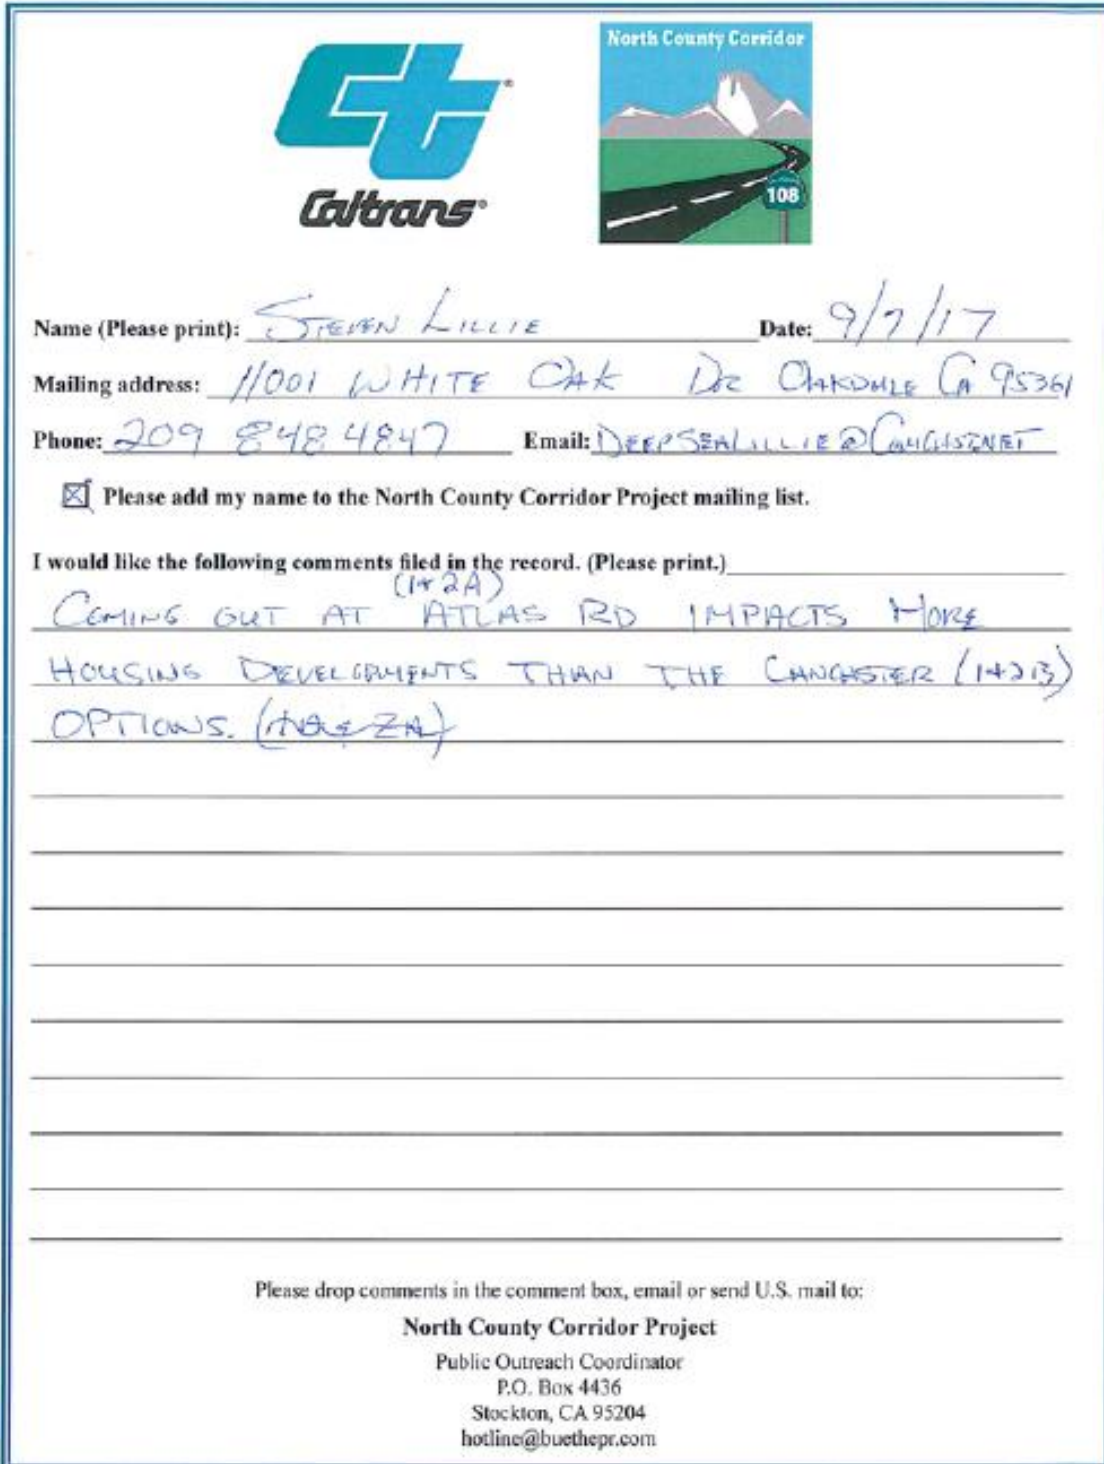 Ct
Caltrans
North County Corridor
108
Name (Please print): STEVEN LILLIE Date: 9/7/17
Mailing address: 11001 WHITE OAK DR OAKDALE CA 95361
Phone: 209 848 4847 Email:
Please add my name to the North County Corridor Project mailing list.
I would like the following comments filed in the record. (Please print.)
(1+2A)
COMING OUT AT ATLAS RD IMPACTS MORE
HOUSING DEVELOPMENTS THAN THE LANCASTER (1+2B)
OPTIONS.
Please drop comments in the comment box, email or send U.S. mail to:
North County Corridor Project
Public Outreach Coordinator
P.O. Box 4436
Stockton, CA 95204
hotline@buethepr.com